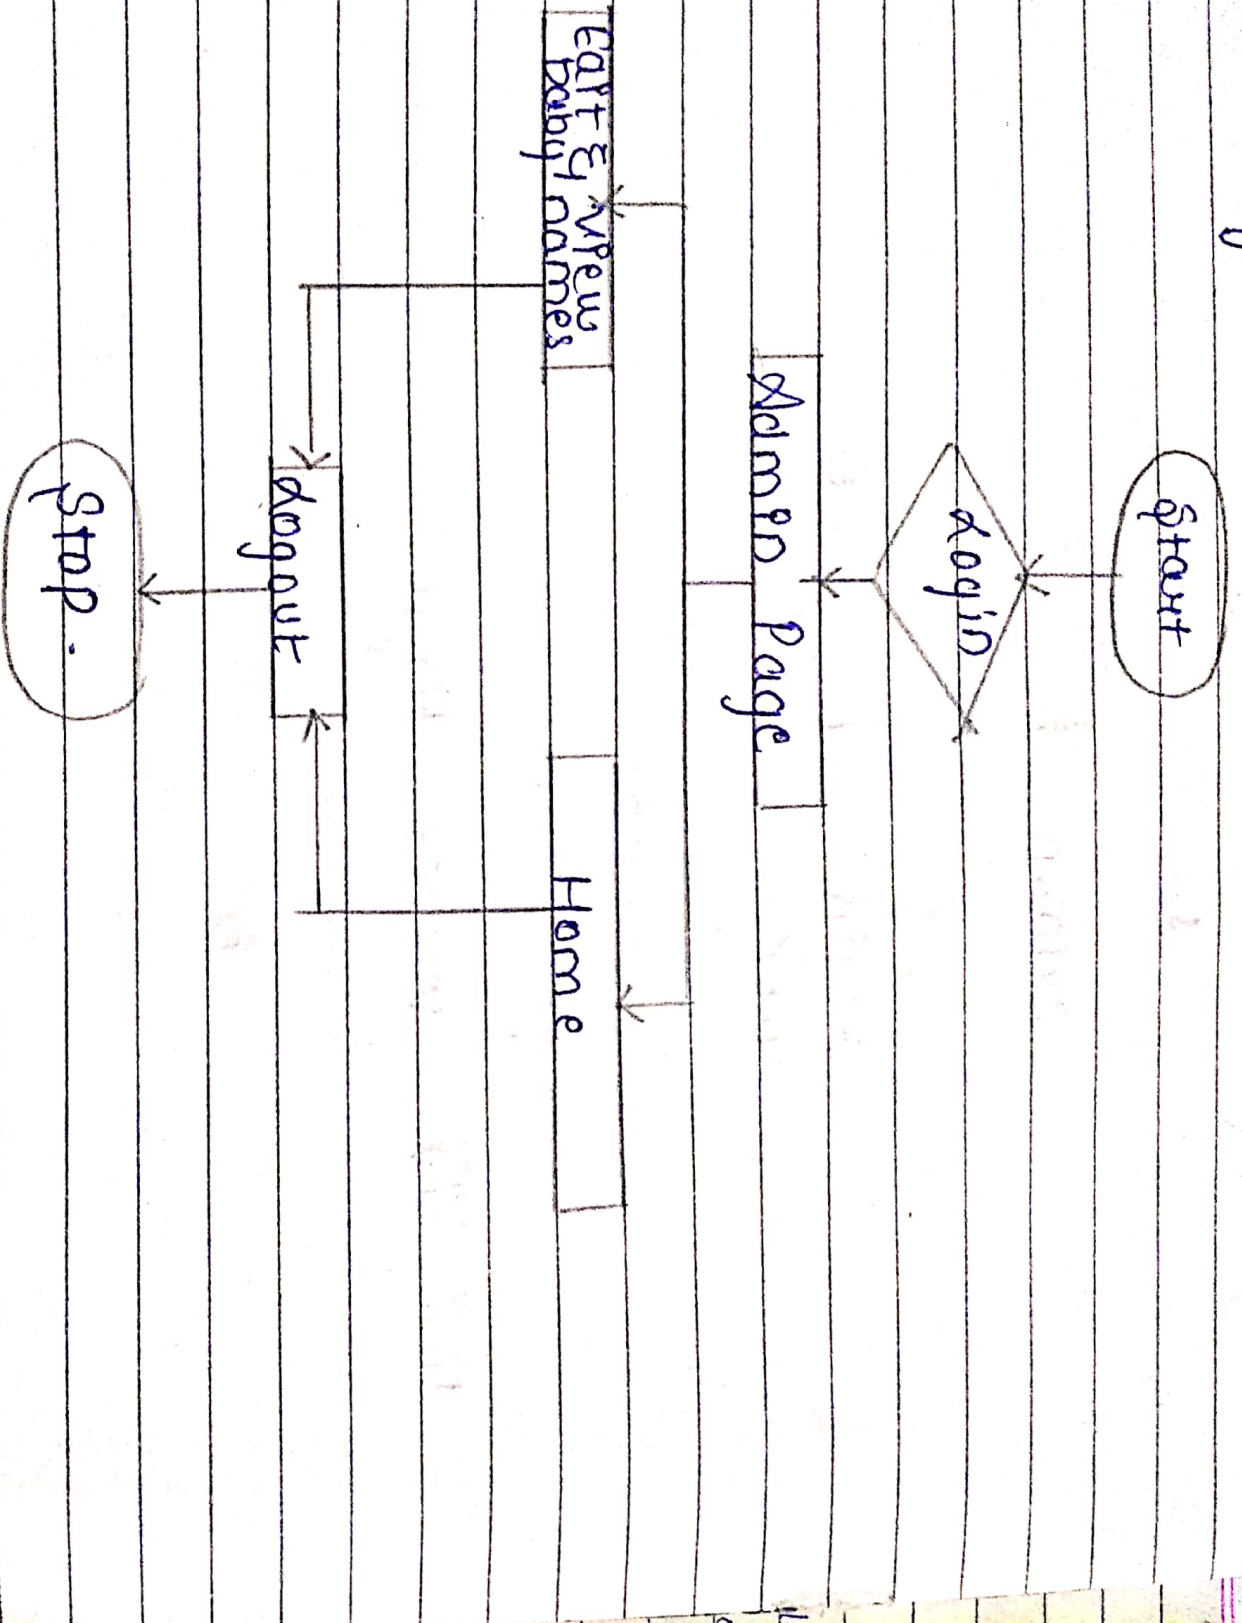 Start
Login
Admin Page
Edit & view
baby names
Home
Logout
Stop.